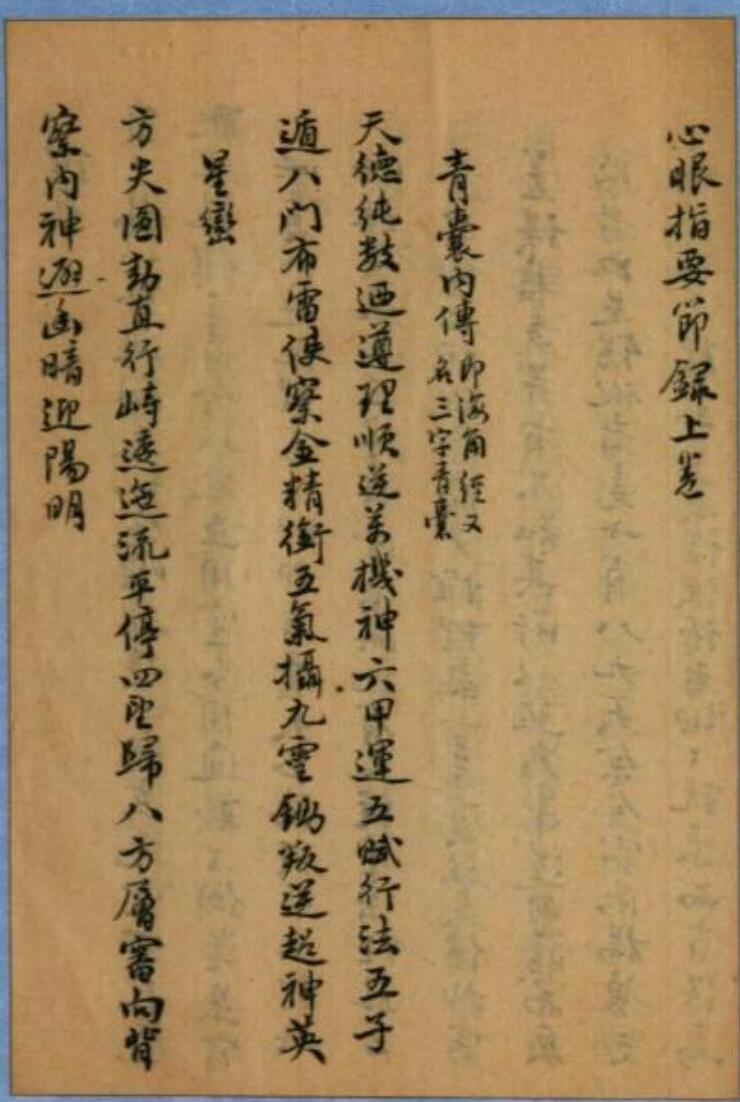 心眼指要節録上卷
青囊内傳即海角經又名三字青囊
天德純数迺遵理順逆若機神六甲運五賦行法五子
遁八門布雷使察金精銜五氣攝九靈鍚叛逆超神英
星巒
方失圓動直行峙逶迤流平停四距歸八方層審向背
察内神避幽暗迎陽明